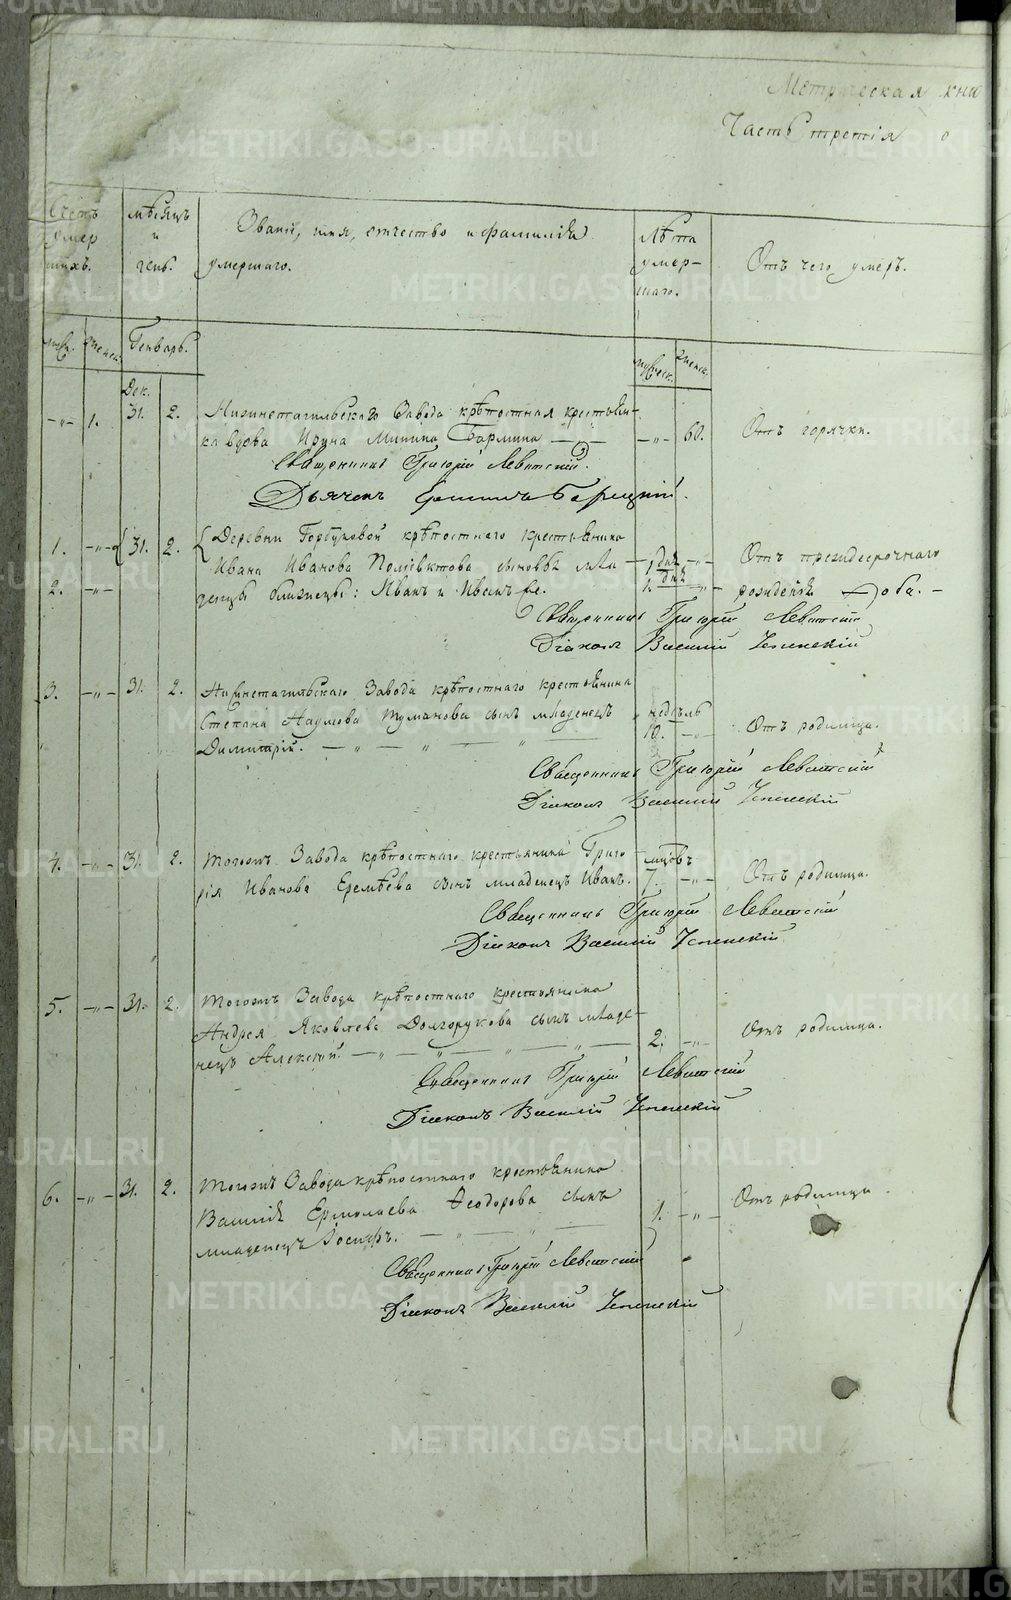 Метрическая кни
Часть третія о
Счетъ умершихъ.
мѣсяцъ и день.
Званіе, имя, отчество и фамилія умершаго.
Лѣта умершаго.
Отъ чего умеръ.
Генварь.
Дек.
1. 31. 2. Нижнетагильскаго Завода крѣпостная крестьян-
ка вдова Ирина Минина 60. Отъ горячки.
Священникъ Григорій Левитскій.
Дьячекъ
1. 31. 2. Деревни Горбуновой крѣпостнаго крестьянина
Ивана Иванова Полуектова сыновья мла
2. денцы близнецы: Иванъ и Иванъ же.
1 дня
1. дня
Отъ преждесрочнаго
рожденія оба.
Священникъ Григорій Левитскій
Діаконъ Василій Успенскій
3. 31. 2. Нижнетагильскаго Завода крѣпостнаго крестьянина
Степана Наумова Туманова сынъ младенецъ недѣль
Димитрій. 10. Отъ родимца.
Священникъ Григорій Левитскій
Діаконъ Василій Успенскій
4. 31. 2. Тогожъ Завода крѣпостнаго крестьянина Григо
рія Иванова Еремѣева сынъ младенецъ Иванъ. 7. Отъ родимца.
Священникъ Григорій Левитскій
Діаконъ Василій Успенскій
5. 31. 2. Тогожъ Завода крѣпостнаго крестьянина
Андрея Яковлева Долгорукова сынъ младе-
нецъ Алексій. 2. Отъ родимца.
Священникъ Григорій Левитскій
Діаконъ Василій Успенскій
6. 31. 2. Тогожъ Завода крѣпостнаго крестьянина
Василія Ермолаева Ѳеодорова сынъ 1. Отъ родимца.
младенецъ Іосифъ.
Священникъ Григорій Левитскій
Діаконъ Василій Успенскій
METRIKI.GASO-URAL.RU